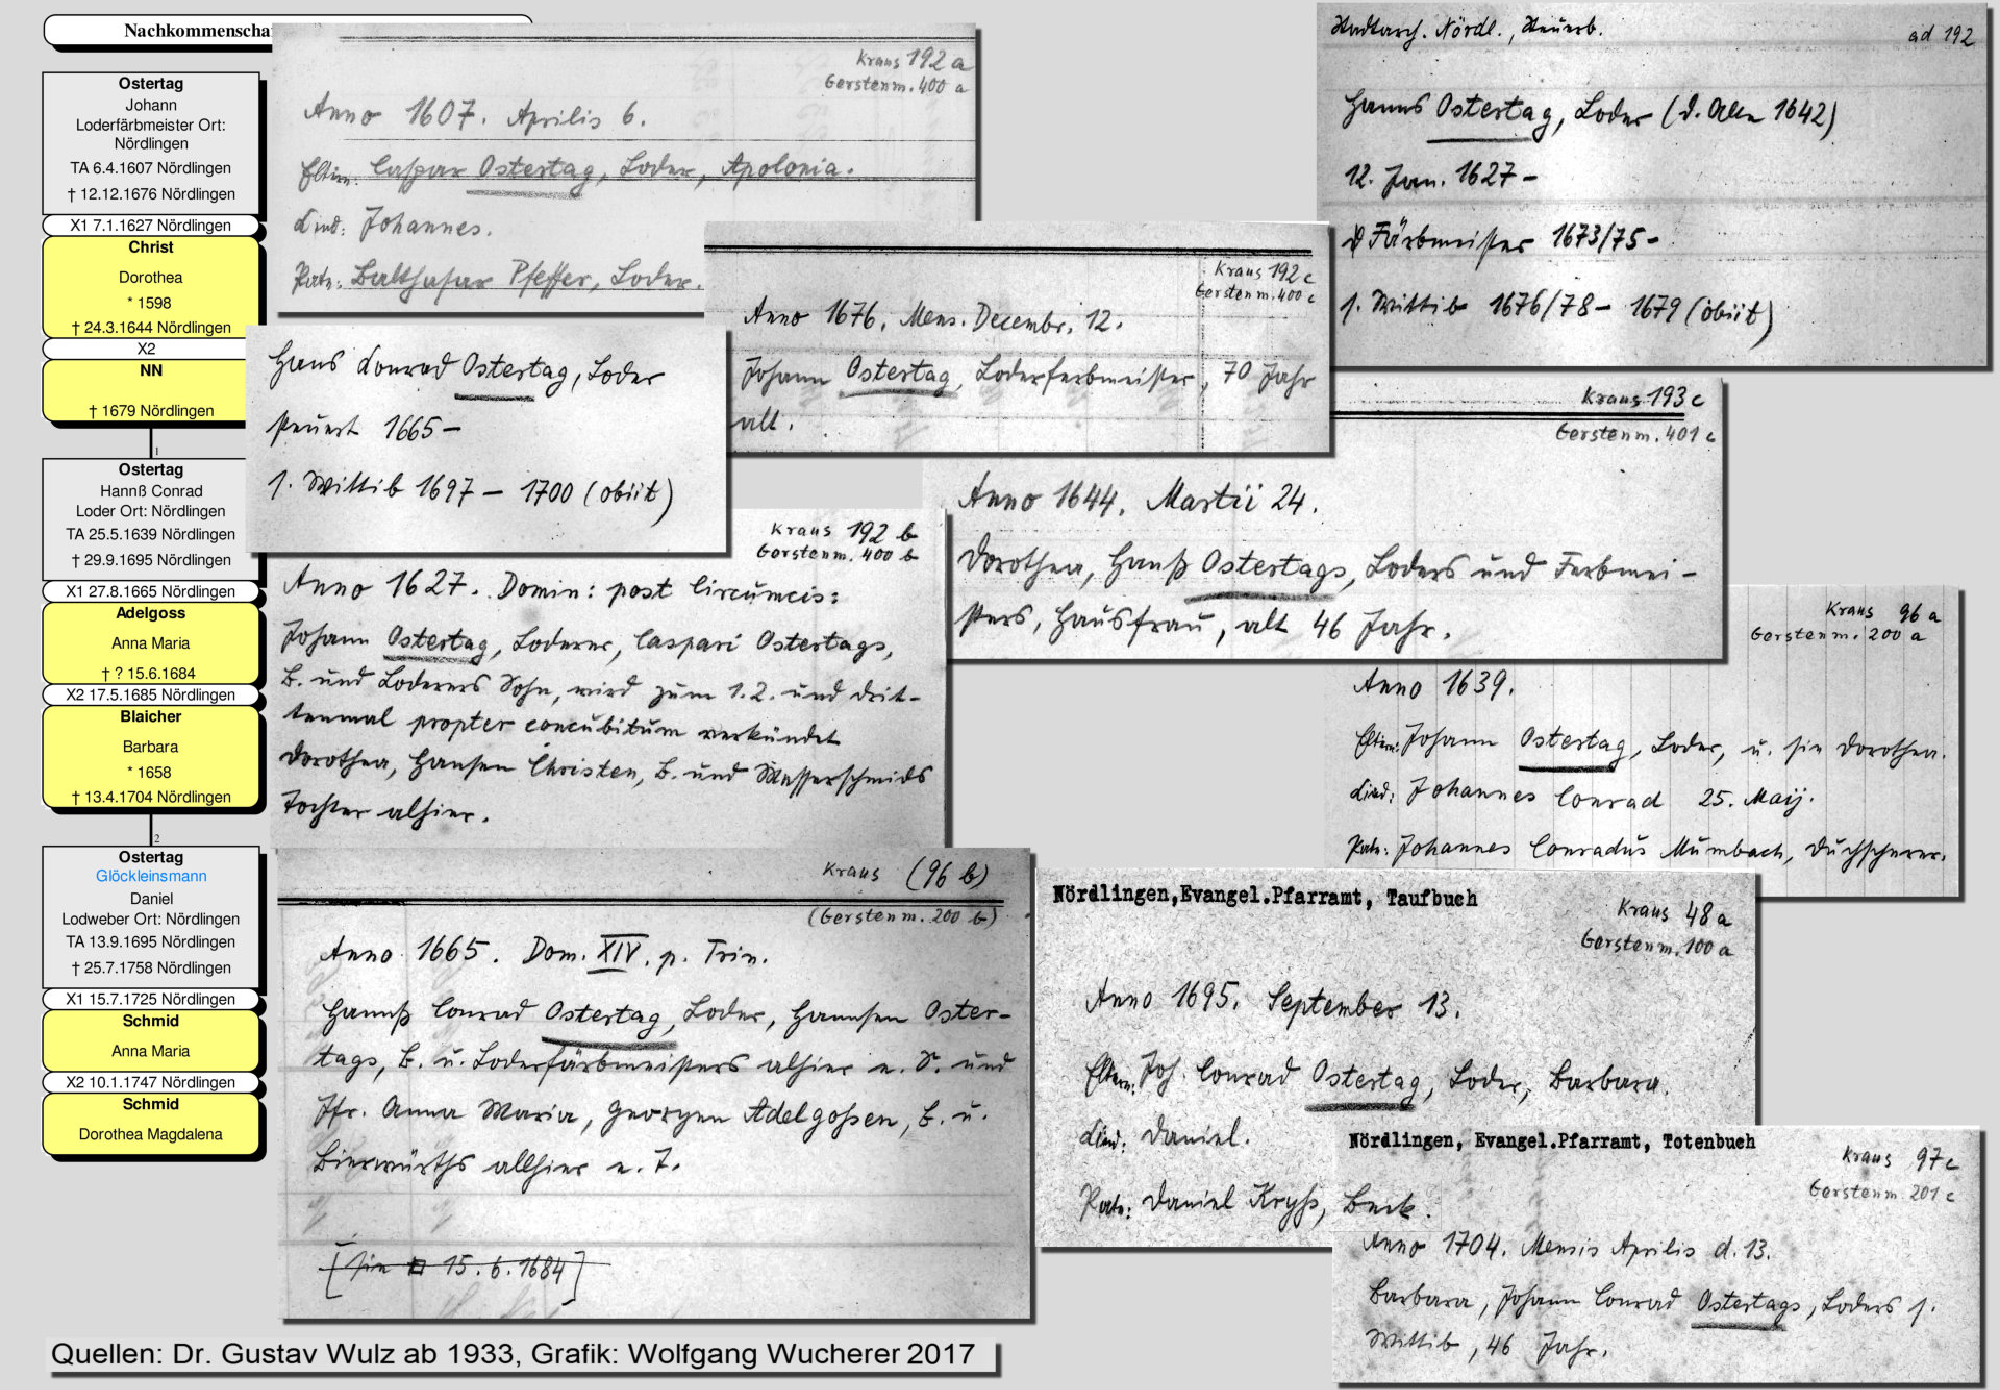 Nachkommenscha
Ostertag
Johann
Loderfärbmeister Ort:
Nördlingen
TA 6.4.1607 Nördlingen
† 12.12.1676 Nördlingen
X1 7.1.1627 Nördlingen
Christ
Dorothea
* 1598
† 24.3.1644 Nördlingen
X2
NN
† 1679 Nördlingen
1
Ostertag
Hannß Conrad
Loder Ort: Nördlingen
TA 25.5.1639 Nördlingen
† 29.9.1695 Nördlingen
X1 27.8.1665 Nördlingen
Adelgoss
Anna Maria
† ? 15.6.1684
X2 17.5.1685 Nördlingen
Blaicher
Barbara
* 1658
† 13.4.1704 Nördlingen
2
Ostertag
Glöckleinsmann
Daniel
Lodweber Ort: Nördlingen
TA 13.9.1695 Nördlingen
† 25.7.1758 Nördlingen
X1 15.7.1725 Nördlingen
Schmid
Anna Maria
X2 10.1.1747 Nördlingen
Schmid
Dorothea Magdalena
Kraus 192 a
Gerstenm. 400 a
Anno 1607. Aprilis 6.
Eltern: Caspar Ostertag, Loder, Apolonia.
Kind: Johannes.
Pate: Balthasar Pfeffer, Loder.
Stadtarch. Nördl., Steuerb.
ad 192
Hanns Ostertag, Loder (d. Alte 1642)
12. Jan. 1627 –
Färbmeister 1673/75 –
s. Wittib 1676/78 – 1679 (obiit)
Kraus 192 c
Gerstenm. 400 c
Anno 1676. Mens. Decembr. 12.
Johann Ostertag, Loderferbmeister, 70 Jahr
alt.
Hans Konrad Ostertag, Loder
steuert 1665 –
s. Wittib 1697 – 1700 (obiit)
Kraus 193 c
Gerstenm. 401 c
Anno 1644. Martii 24.
Dorothea, Hanß Ostertags, Loders und Ferbmei-
sters, Hausfrau, alt 46 Jahr.
Kraus 192 b
Gerstenm. 400 b
Anno 1627. Domin: post Circumcis:
Johann Ostertag, Loderer, Caspari Ostertags,
B. und Loderers Sohn, wird zum 1. 2. und drit-
tenmal propter concubitum verkündet
Dorothea, Hansen Christen, B. und Messerschmids
Tochter alhier.
Kraus 96 a
Gerstenm. 200 a
Anno 1639.
Eltern: Johann Ostertag, Loder, u. sie Dorothea.
Kind: Johannes Conrad 25. Maij.
Pate: Johannes Conradus Mumbach, Duchscherer.
Kraus (96 b)
(Gerstenm. 200 b)
Anno 1665. Dom. XIV. p. Trin.
Hannß Conrad Ostertag, Loder, Hannsen Oster-
tags, B. u. Loderfärbmeisters alhier e. S. und
Jfr. Anna Maria, Georgen Adelgoßen, B. u.
Bierwürths allhier e. T.
[sie 15. 6. 1684]
Nördlingen,Evangel.Pfarramt, Taufbuch
Kraus 48 a
Gerstenm. 100 a
Anno 1695. September 13.
Eltern: Joh. Conrad Ostertag, Loder, Barbara.
Kind: Daniel.
Pate: Daniel Kryß, Beck.
Nördlingen, Evangel.Pfarramt, Totenbuch
Kraus 97 c
Gerstenm. 201 c
Anno 1704. Mensis Aprilis d. 13.
Barbara, Johann Conrad Ostertags, Loders s.
Wittib, 46 Jahr.
Quellen: Dr. Gustav Wulz ab 1933, Grafik: Wolfgang Wucherer 2017